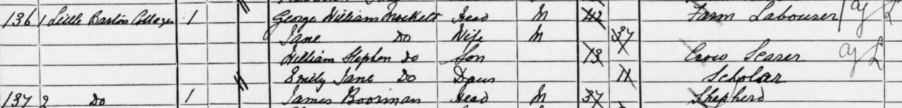 136 1 Little Barton Cottages 1 George William Mockett Head M 42 Farm Labourer Ag L
Jane Do Wife M 37
William Stephen Do Son 13 Crow Scarer Ag L
Emily Jane Do Daur 11 Scholar
137 2 Do 1 James Boorman Head M 37 Shepherd